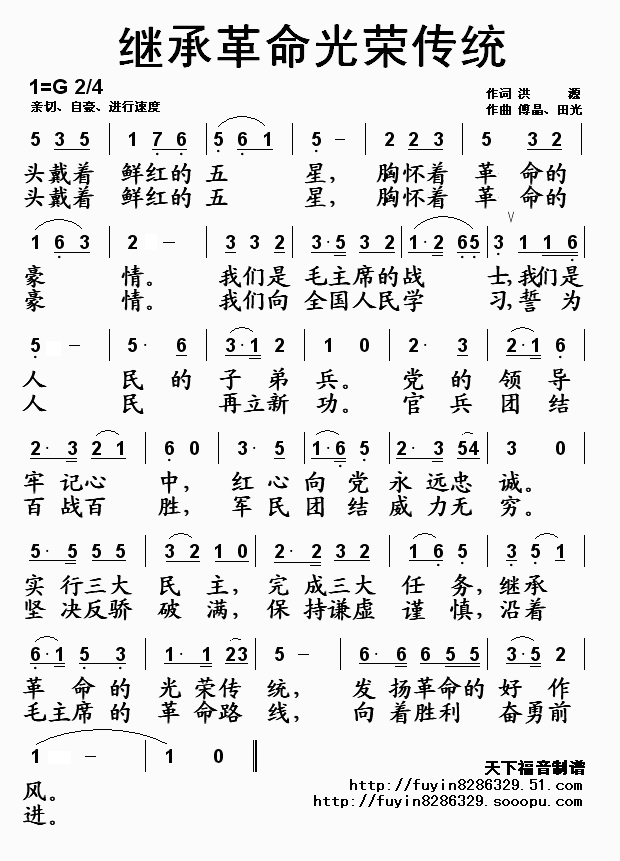 继承革命光荣传统
1=G 2/4
亲切、自豪、进行速度
作词 洪 源
作曲 傅晶、田光
5 3 5 | 1 7 6 | 5 6 1 | 5 – | 2 2 3 | 5 3 2 |
头戴着 鲜红的 五 星, 胸怀着 革 命的
头戴着 鲜红的 五 星, 胸怀着 革 命的
1 6 3 | 2 – | 3 3 2 | 3·5 3 2 | 1·2 6 5 | 3 1 1 6 |
豪 情。 我们是 毛主席的战 士,我们是
豪 情。 我们向 全国人民学 习,誓为
5 – | 5· 6 | 3·1 2 | 1 0 | 2· 3 | 2·1 6 |
人 民 的 子 弟 兵。 党 的 领 导
人 民 再立新 功。 官 兵 团 结
2·3 2 1 | 6 0 | 3· 5 | 1·6 5 | 2·3 5 4 | 3 0 |
牢 记心 中, 红 心 向 党 永 远忠 诚。
百 战百 胜, 军 民 团 结 威 力无 穷。
5·5 2 2 | 3 2 1 0 | 2·2 3 2 | 1 6 5 | 3 5 1 |
实 行三大 民 主, 完 成三大 任 务,继承
坚 决反骄 破 满, 保 持谦虚 谨 慎,沿着
6·1 5 3 | 1·1 2 3 | 5 – | 6·6 6 5 5 | 3·5 2 |
革 命的 光 荣传 统, 发 扬革命的 好 作
毛主席 的 革 命路 线, 向 着胜利 奋勇前
1 – | 1 0 ‖
风。
进。
天下福音制谱
http://fuyin8286329.51.com/
http://fuyin8286329.sooopu.com/